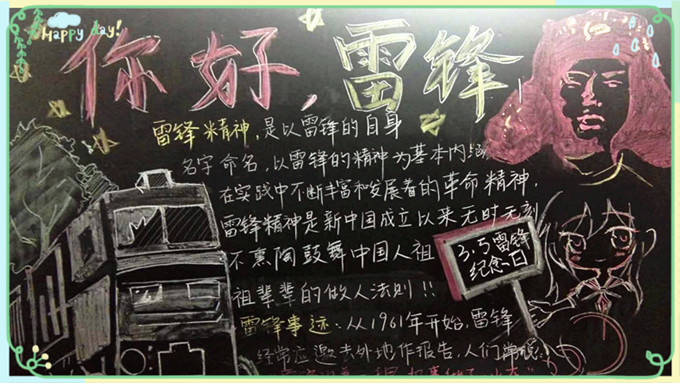 Happy day!
你好，雷锋！
雷锋精神，是以雷锋的自身
名字命名，以雷锋的精神为基本内涵
在实践中不断丰富和发展着的革命精神，
雷锋精神是新中国成立以来无时无刻
不熏陶鼓舞中国人祖
祖辈辈的做人法则!!
3.5雷锋
纪念日
雷锋事迹：从1961年开始，雷锋
经常应邀去外地作报告，人们